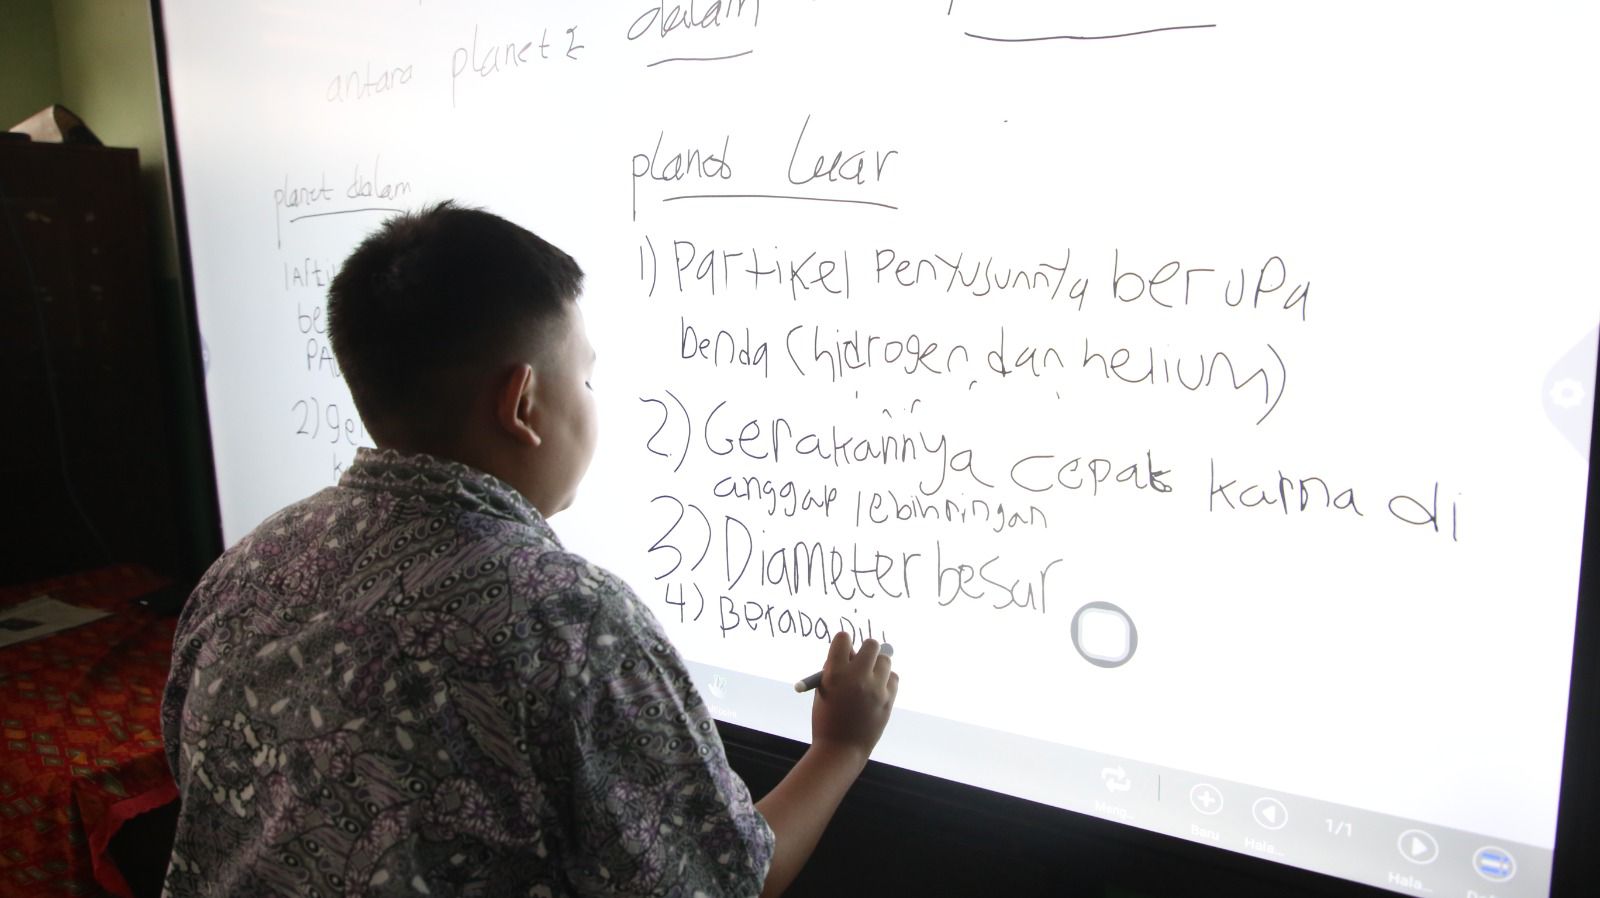 dalam
antara planet2
planet dalam
2)
planet luar
1) Partikel Penyusunnya berupa
benda (hidrogen dan helium)
2) Gerakannya cepat karna di
anggap lebih ringan
3) Diameter besar
4) Berada di
Meng...
Baru
Hala...
1/1
Hala...